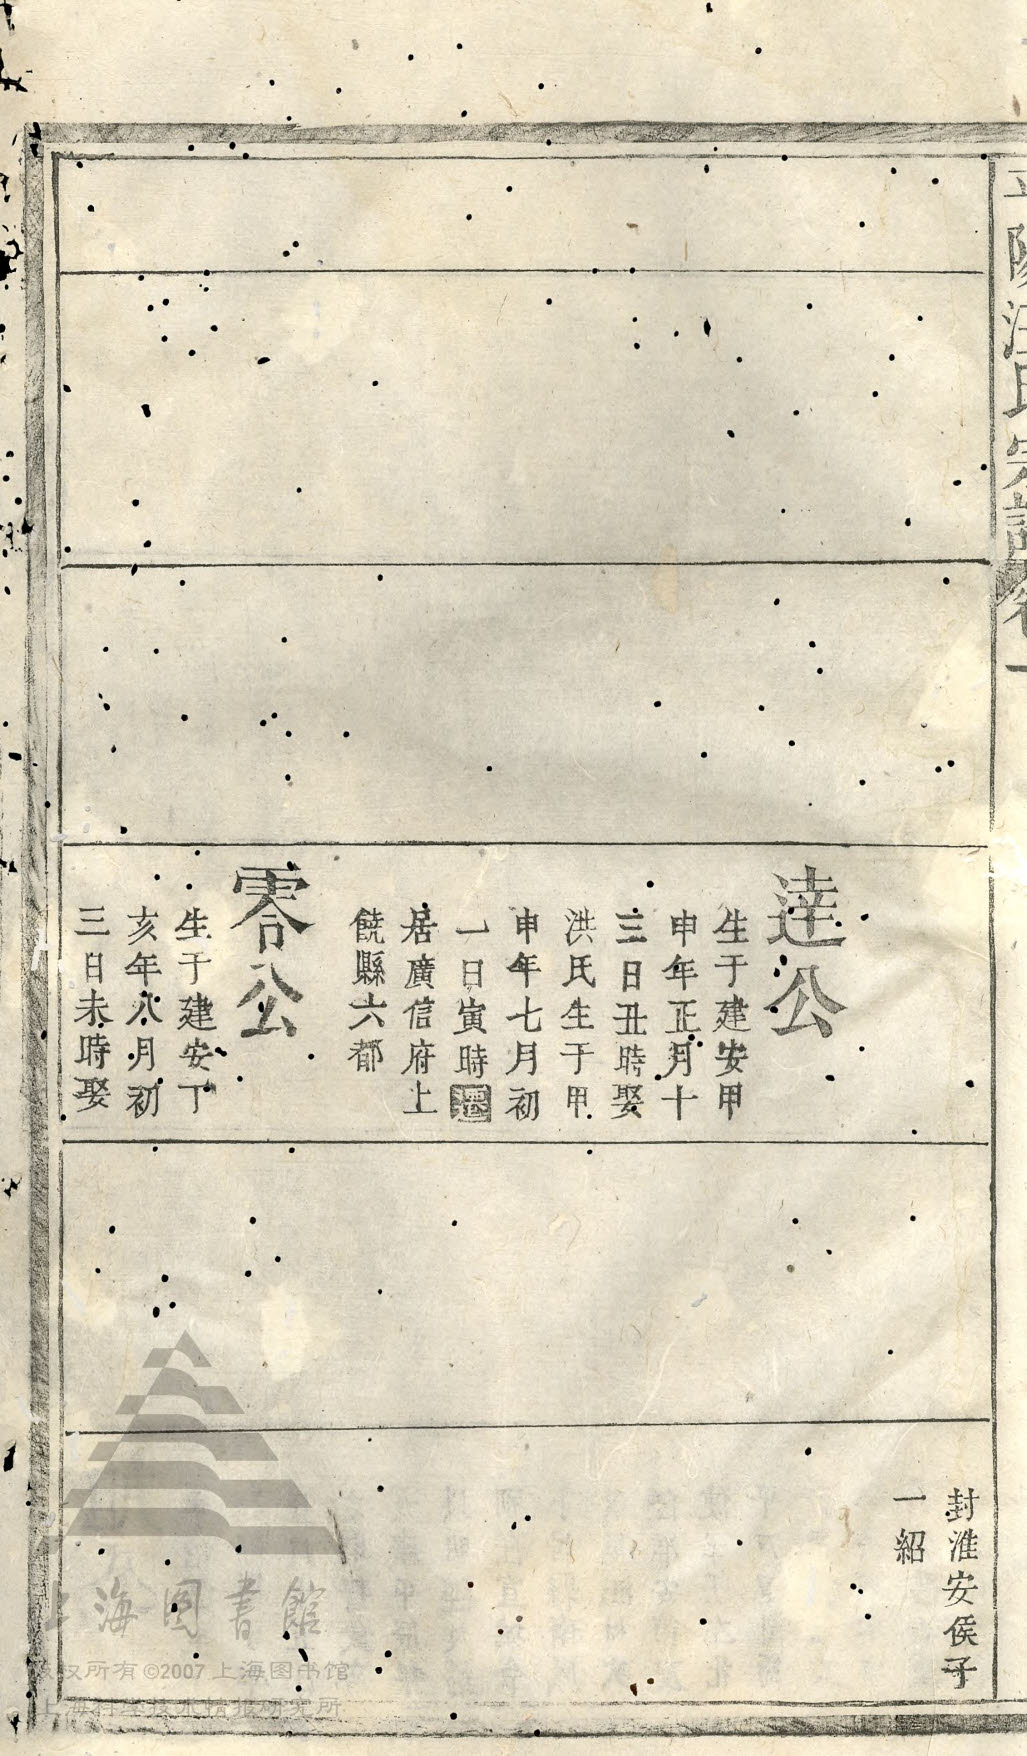 平陽汪氏宗譜卷一
達公
生于建安甲
申年正月十
三日丑時娶
洪氏生于甲
申年七月初
一日寅時遷
居廣信府上
饒縣六都
零公
生于建安丁
亥年八月初
三日未時娶
封淮安侯子
一紹
上海图书馆
版权所有©2007上海图书馆
上海科学技术情报研究所